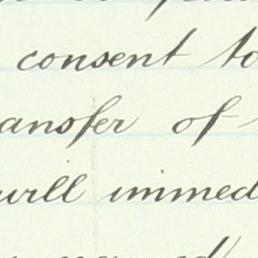 consent to
ansfer of
will immed